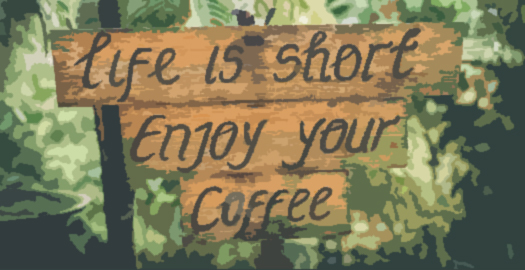 life is short
Enjoy your
Coffee